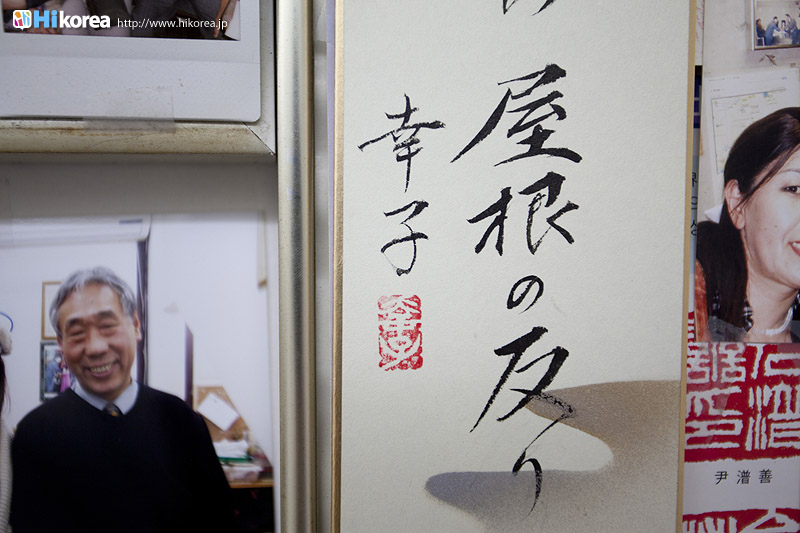 Hikorea http://www.hikorea.jp
屋根の反り
幸子
尹潽善